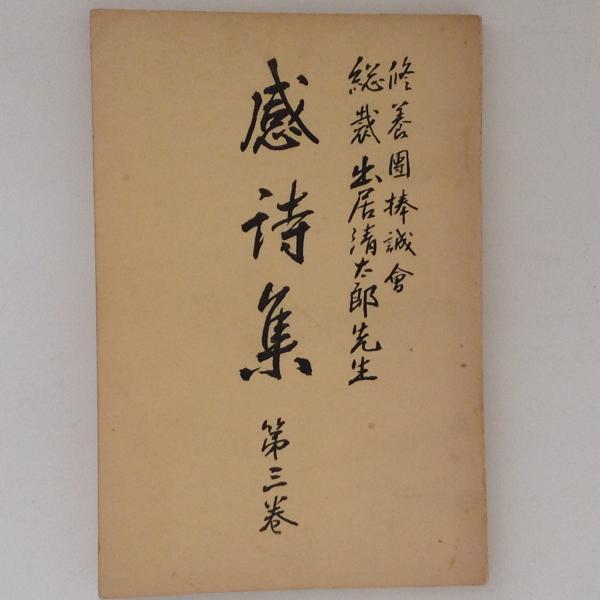 修養團捧誠會
総裁出居清太郎先生
感詩集 第三巻